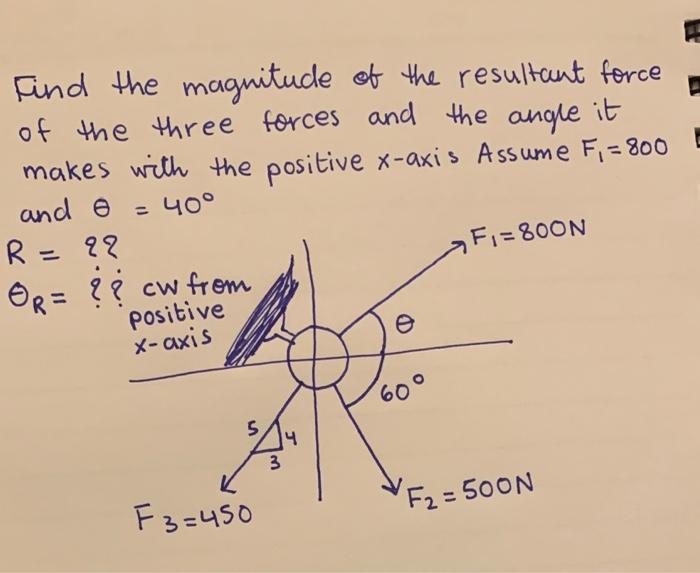 Find the magnitude of the resultant force
of the three forces and the angle it
makes with the positive x-axis Assume F₁=800
and θ = 40°
R = ??
θR = ?? cw from
positive
x-axis
F₁=800N
θ
60°
5
4
3
F₂=500N
F3=450